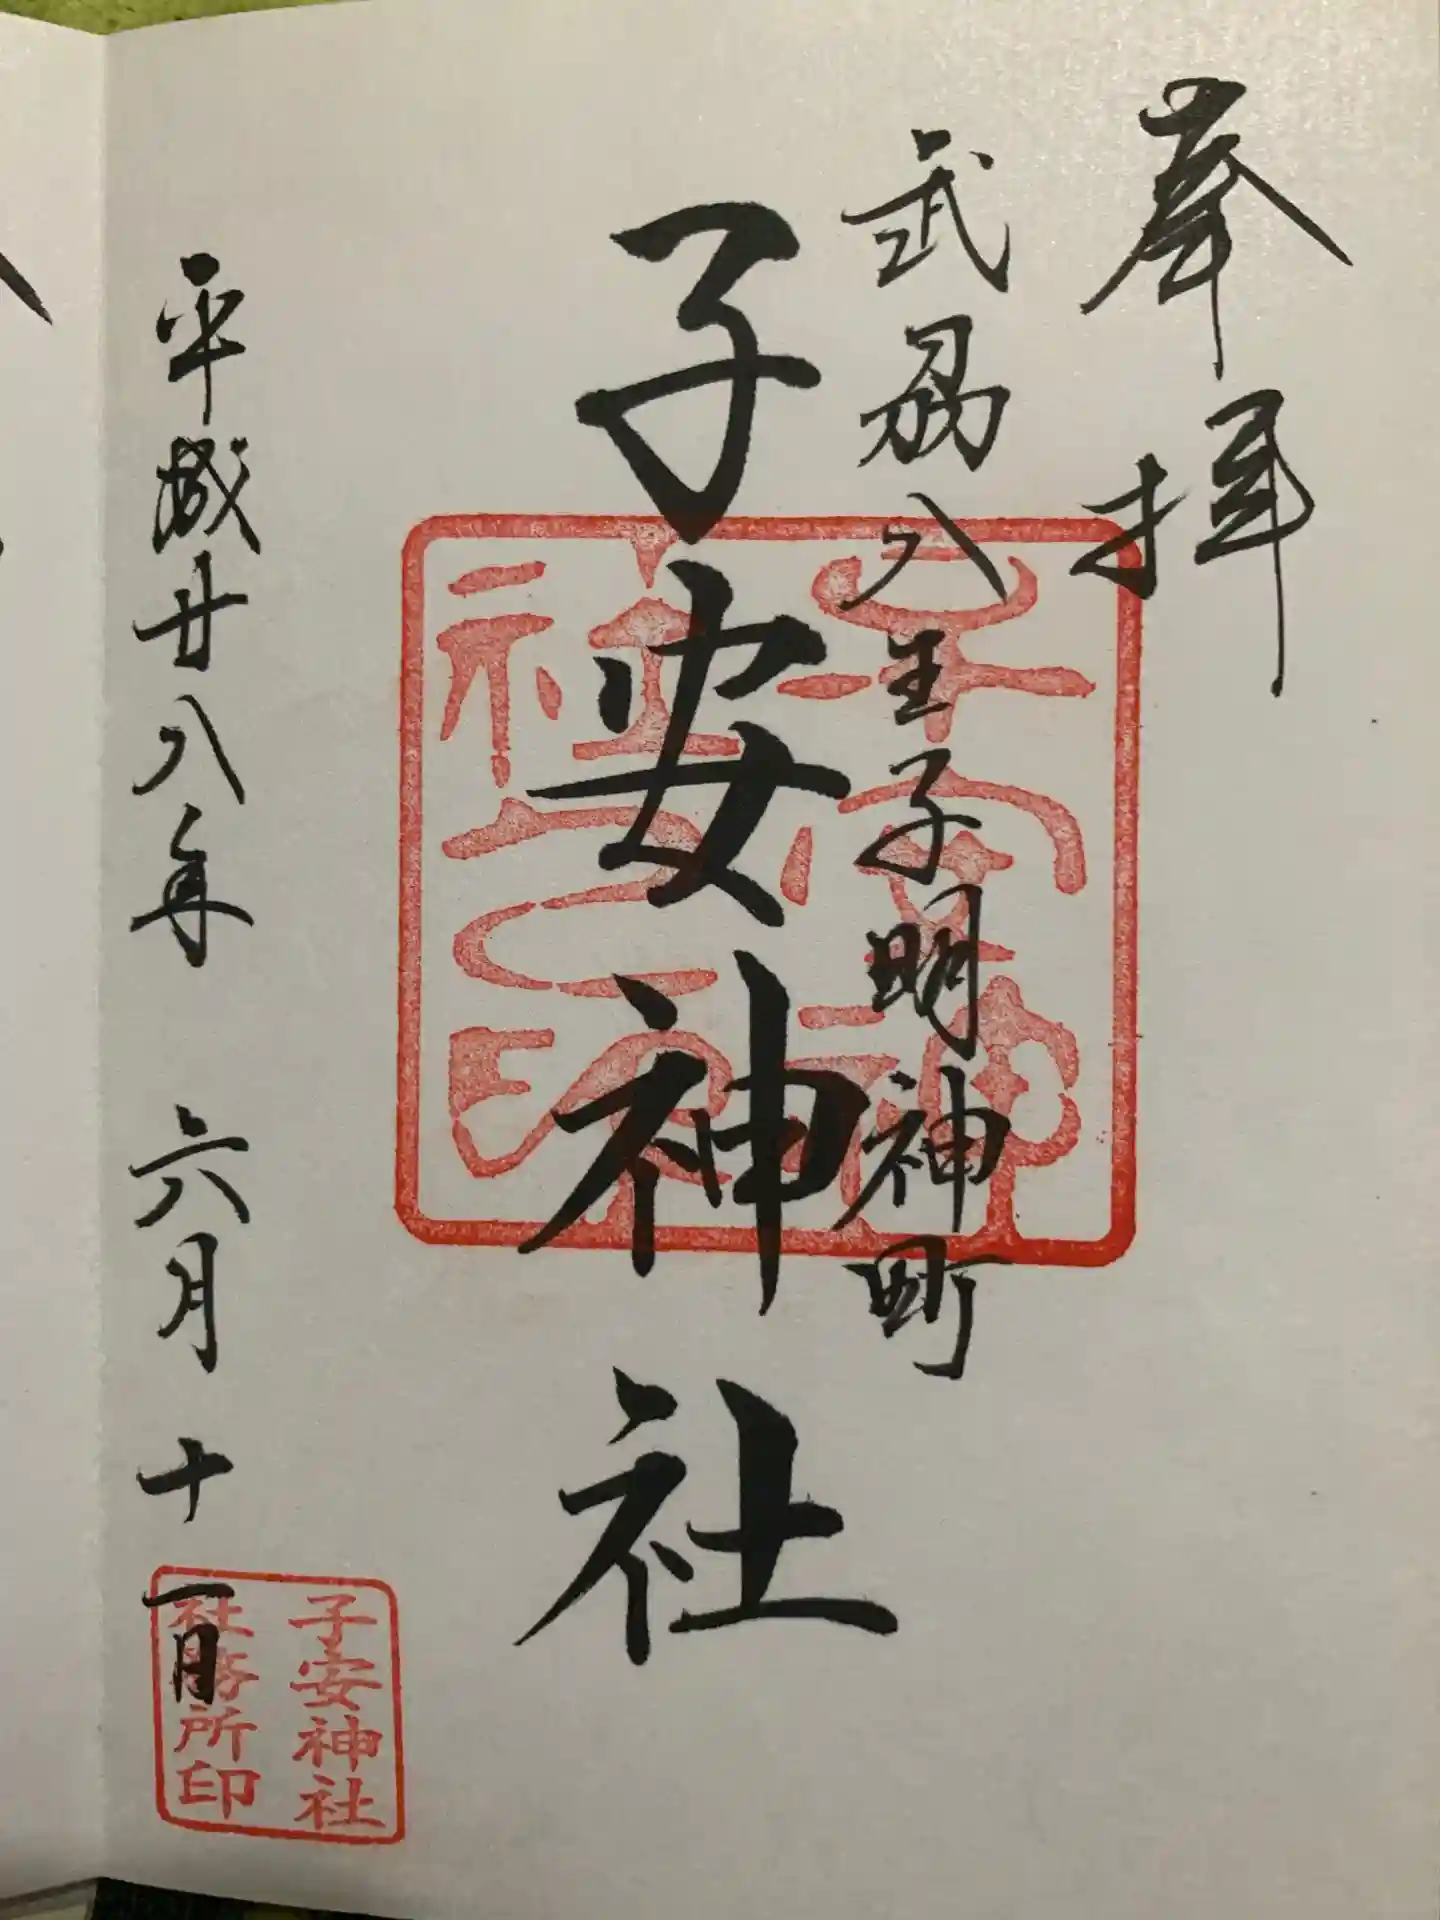 奉拝
武刕八王子明神町
子安神社
平成廿八年 六月十一日
子安神社之印
子安神社
社務所印